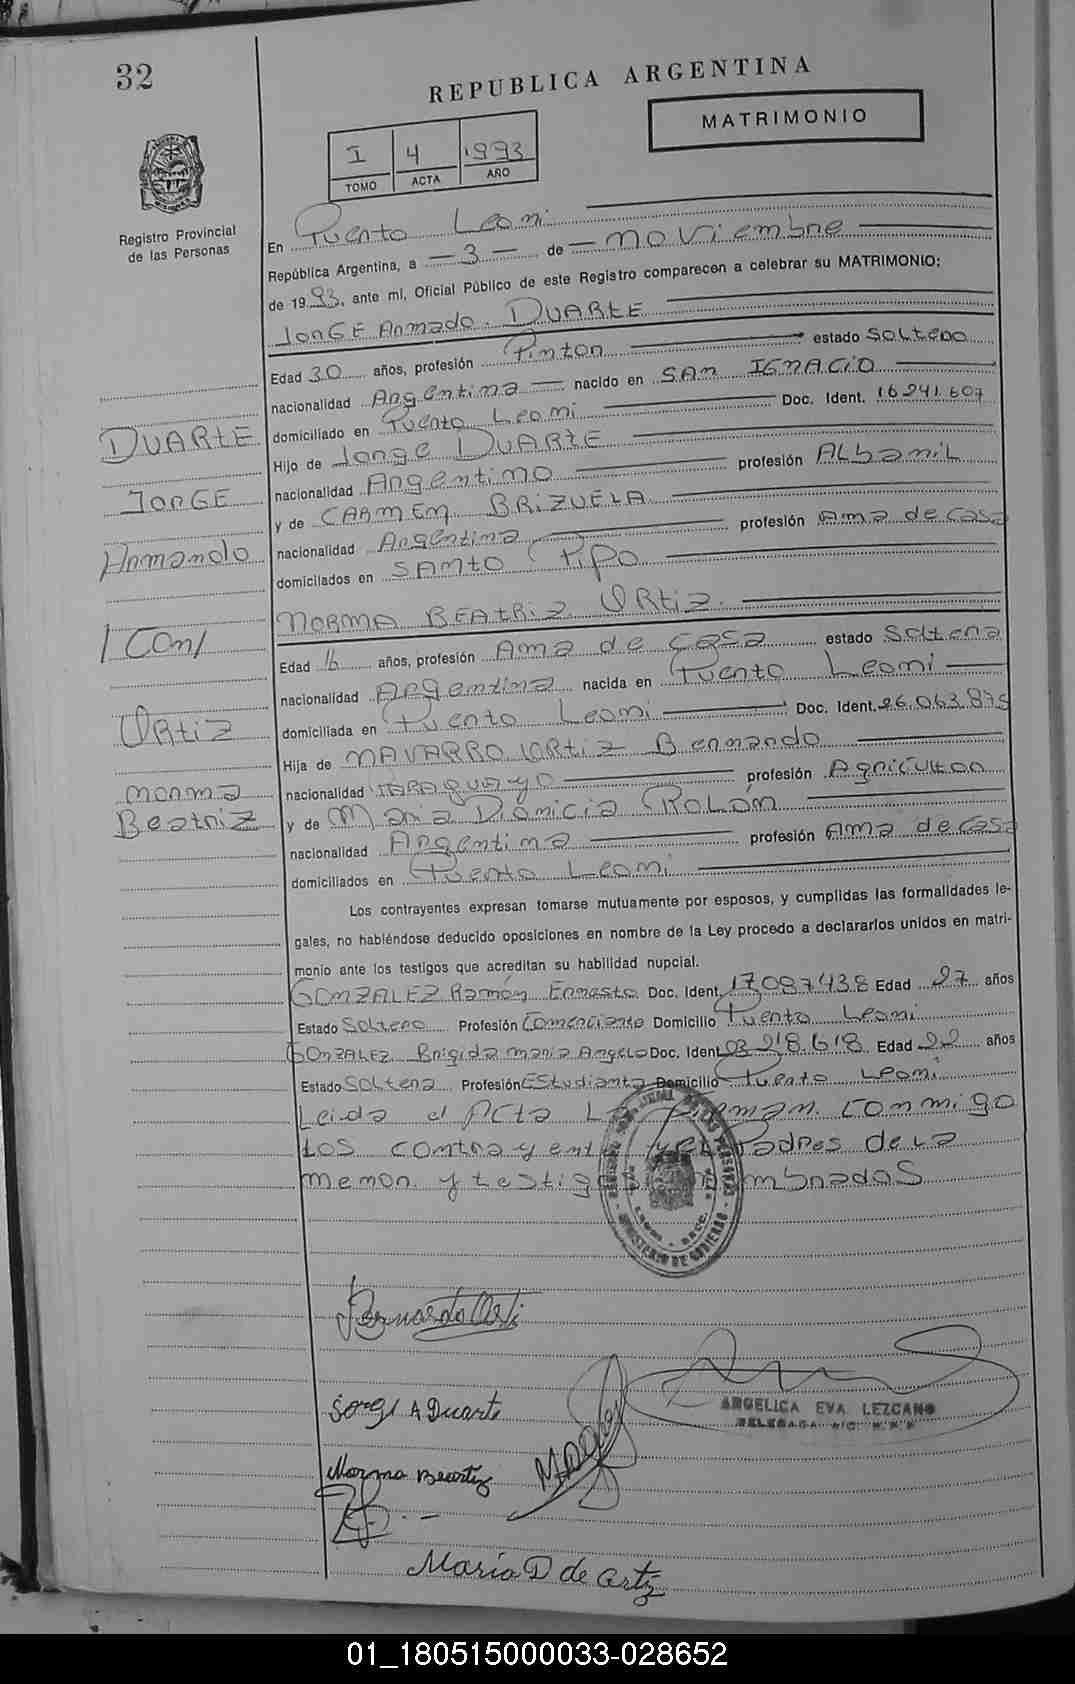 32
REPUBLICA ARGENTINA
MATRIMONIO
I 4 1993
TOMO ACTA AÑO
Registro Provincial
de las Personas
En Puerto Leoni
República Argentina, a — 3 — de — noviembre
de 1993, ante mi, Oficial Público de este Registro comparecen a celebrar su MATRIMONIO:
JORGE Armado. DUARTE
Edad 30 años, profesión Pintor estado SOLTERO
nacionalidad Argentina nacido en SAN IGNACIO
domiciliado en Puerto Leoni Doc. Ident. 16.241.607
Hijo de Jorge DUARTE
nacionalidad Argentino profesión ALbaniL
y de CARMEN BRIZUELA
nacionalidad Argentina profesión Ama de casa
domiciliados en SANTO PIPO
NORMA BEATRIZ ORTIZ.
Edad 16 años, profesión Ama de casa estado Soltera
nacionalidad Argentina nacida en Puerto Leoni
domiciliada en Puerto Leoni Doc. Ident. 26.063.875
Hija de NAVARRO ORTIZ Bernardo
nacionalidad PARAguayo profesión Agricultor
y de Maria Dionicia ROLÓN
nacionalidad Argentina profesión Ama de casa
domiciliados en Puerto Leoni
DUARTE
JORGE
Armando
/ Con /
ORTIZ
Norma
Beatriz
Los contrayentes expresan tomarse mutuamente por esposos, y cumplidas las formalidades le-
gales, no habiéndose deducido oposiciones en nombre de la Ley procedo a declararlos unidos en matri-
monio ante los testigos que acreditan su habilidad nupcial.
GONZALEZ Ramón Ernesto Doc. Ident. 17.087.438 Edad 27 años
Estado Soltero Profesión Comerciante Domicilio Puerto Leoni
GONZALEZ Brigida Maria Angela Doc. Ident. 23.218.618 Edad 22 años
Estado SOLtera Profesión EStudiante Domicilio Puerto Leoni
Leida el Acta La Firman conmigo
Los contrayentes y Padres de La
menor y testigos nombrados
MINISTERIO DE GOBIERNO
Bernardo Orti
Jorge A Duarte
ANGELICA EVA LEZCANO
Norma Beartiz
Maria D de Ortiz
01_180515000033-028652